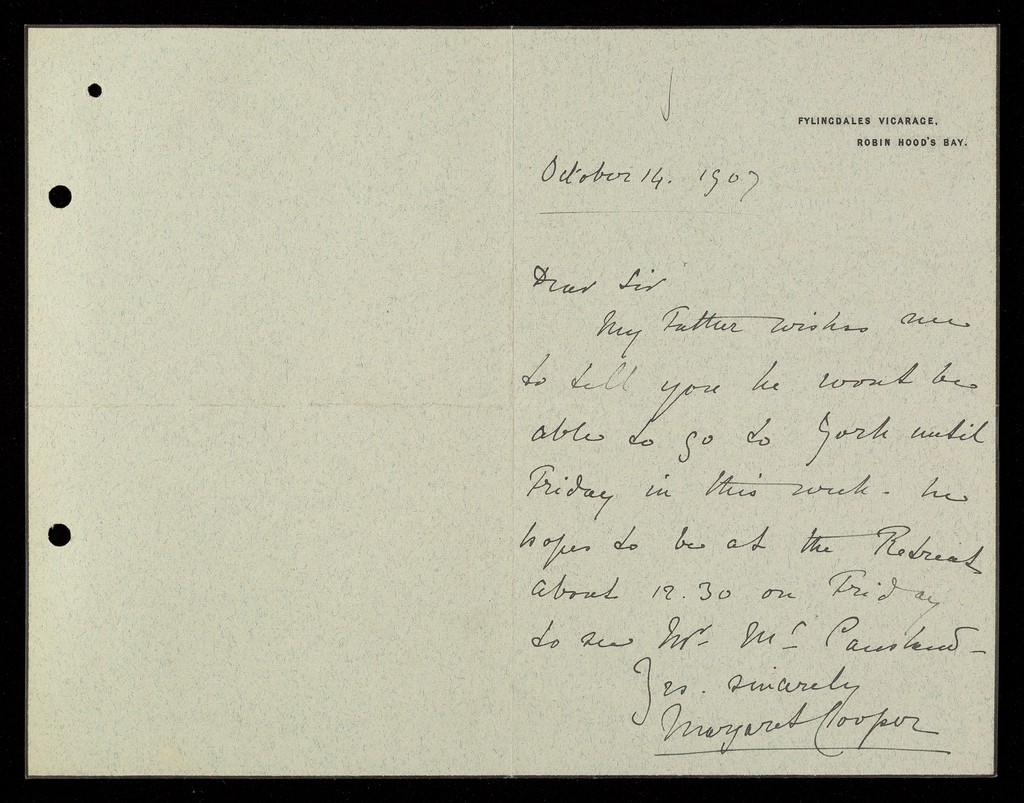 FYLINGDALES VICARAGE,
ROBIN HOOD'S BAY.
October 14. 1907
Dear Sir
My Father wishes me
to tell you he wont be
able to go to York until
Friday in this week - he
hopes to be at the Retreat
about 12.30 on Friday
to see Mr. Mc
Yrs. sincerely
Margaret Cooper